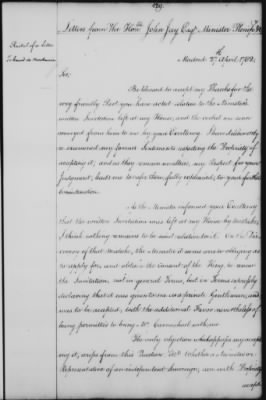 429.
Letters from The Honble John Jay Esqr. Minister Plenipo
Recital of a Letter
Madrid 2d April 1782.
Sir,
Be pleased to accept my Thanks for the
very friendly Part you have acted relative to the
written Invitation left at my House, and the verbal one since
conveyed from him to me by your Excellency. I have deliberately
re-examined my former Sentiments respecting the Propriety of
accepting it, and as they remain unaltered, my Respect for your
Judgment, leads me to refer them fully explained, to your further
Consideration.
As the Minister informed your Excellency
that the written Invitation was left at my House by mistake,
I think nothing remains to be said relative to it. On the Dis-
covery of that mistake, the Minister it seems was so obliging as
to apply for, and obtain the Consent of the King, to renew
the Invitation, not in general Terms, but in Terms expressly
declaring that it was given to me as a private Gentleman, and
was to be accepted, with the additional Favor nevertheless of
being permitted to bring Mr. Carmichael with me
The only objection which opposes my accept-
ing it, arises from this Question Vizt. Whether a Minister or
Representative of an independent Sovereign, can with Propriety
accept